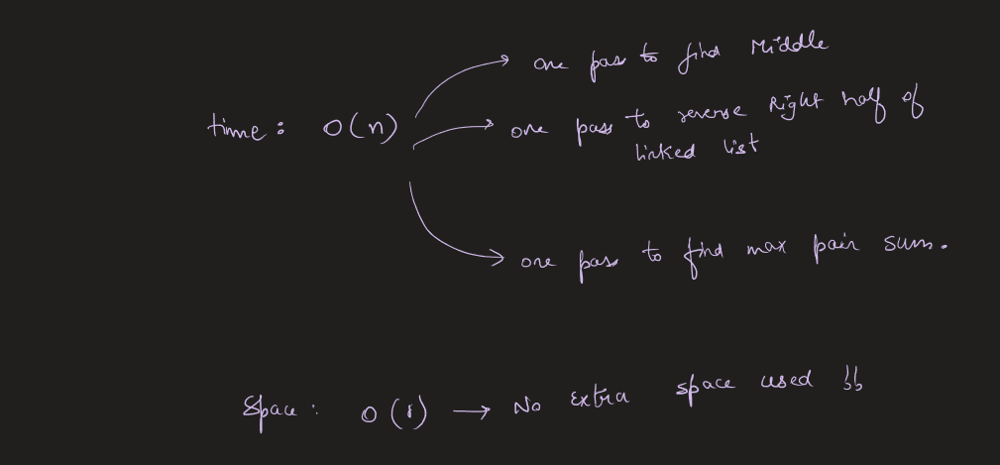 one pass to find Middle
time: O(n)
one pass to reverse Right half of
linked list
one pass to find max pair sum.
Space: O(1) → No extra space used !!